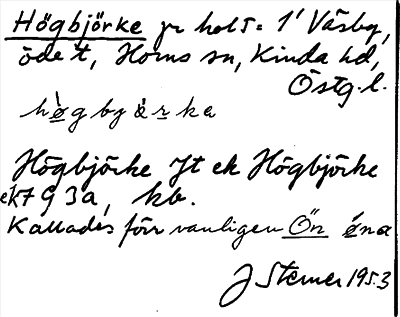 Högbjörke pr hel 5: 1' Väsby,
öde t, Horns sn, Kinda hd,
Östg. l.
hø̀gbyärka
Högbjörke Jt ek Högbjörke
ek 7 G 3a, kb.
Kallades förr vanligen Ön øna
J Sterner 1953